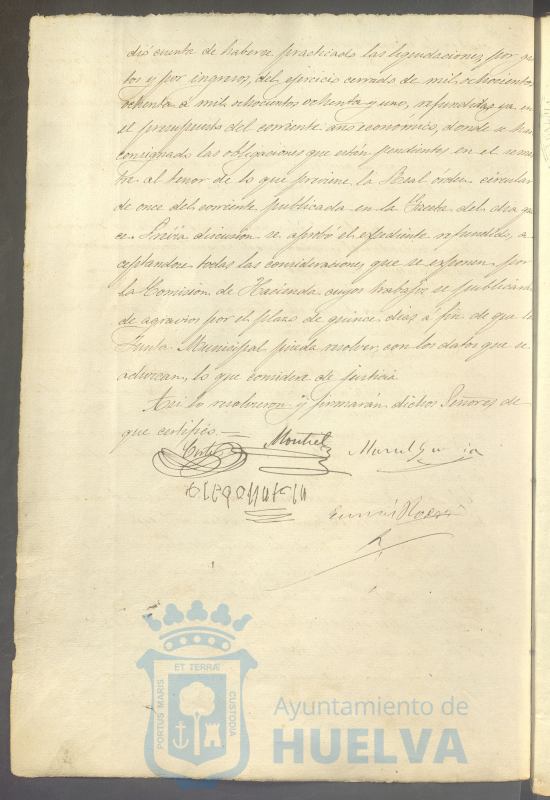 dió cuenta de haberse practicado las liquidaciones, por gas
tos y por ingresos, del ejercicio cerrado de mil ochocientos
ochenta á mil ochocientos ochenta y uno, refundidas ya en
el presupuesto del corriente año económico, donde se han
consignado las obligaciones que están pendientes en el semes
tre al tenor de lo que previene la Real orden circular
de once del corriente publicada en la Gaceta del dia quin
ce. Prévia discusion se aprobó el espediente refundido, a
ceptandose todas las consideraciones que se exponen por
la Comision de Hacienda cuyos trabajos se publicarán
de agravios por el plazo de quince dias a fin de que la
Junta Municipal pueda resolver, con los datos que se
aduzcan, lo que considere de justicia.
Asi lo resolvieron y firmarán dichos Señores de
que certifico.—
Montiel
ET TERRÆ
PORTUS MARIS
CUSTODIA
Ayuntamiento de
HUELVA